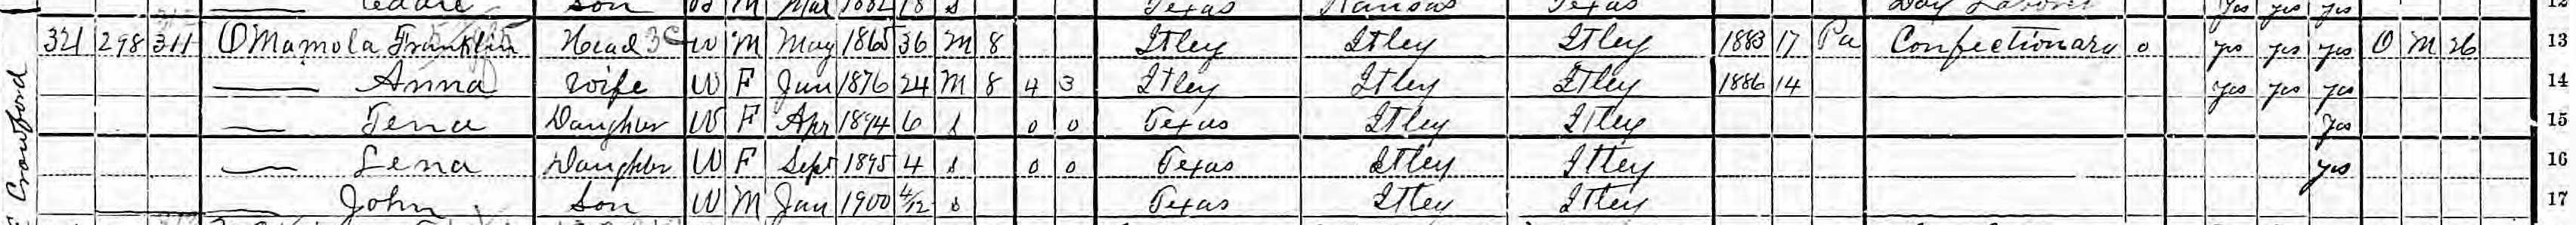 Son M Mar 1882 18 S Texas Kansas Texas Day Laborer yes yes yes 12
321 298 311 O Mamola Franklin Head W M May 1865 36 M 8 Itley Itley Itley 1883 17 Pa Confectionary 0 yes yes yes O M 26 13
— Anna Wife W F Jun 1876 24 M 8 4 3 Itley Itley Itley 1886 14 yes yes yes 14
— Tena Daughter W F Apr 1894 6 S 0 0 Texas Itley Itley Yes 15
— Lena Daughter W F Sept 1895 4 S 0 0 Texas Itley Itley yes 16
— John Son W M Jan 1900 4/12 S Texas Itley Itley 17
Crawford